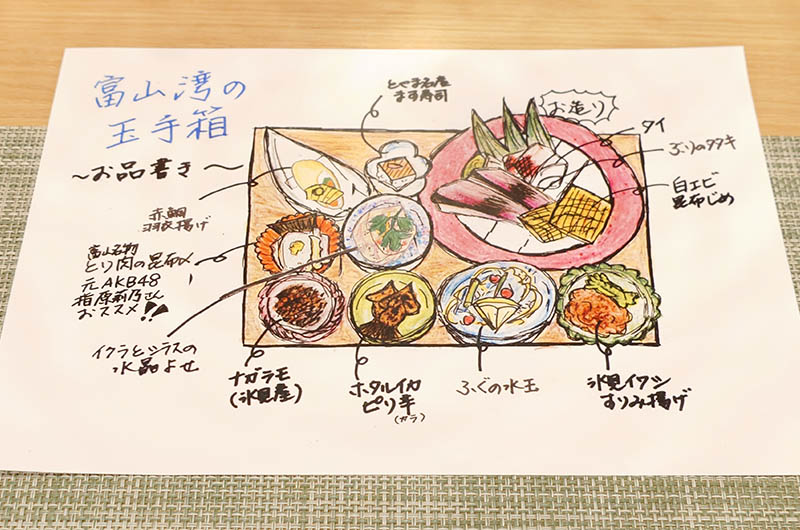 富山湾の
玉手箱
〜お品書き〜
とやま名産
ます寿司
お造り
タイ
ぶりのタタキ
白エビ
昆布じめ
赤鯛
羽衣揚げ
富山名物
とり肉の昆布〆
元AKB48
指原莉乃さん
おススメ!!
イクラとシラスの
水晶よせ
ナガラモ
(氷見産)
ホタルイカ
ピリ辛
(カラ)
ふぐの水玉
氷見イワシ
すりみ揚げ